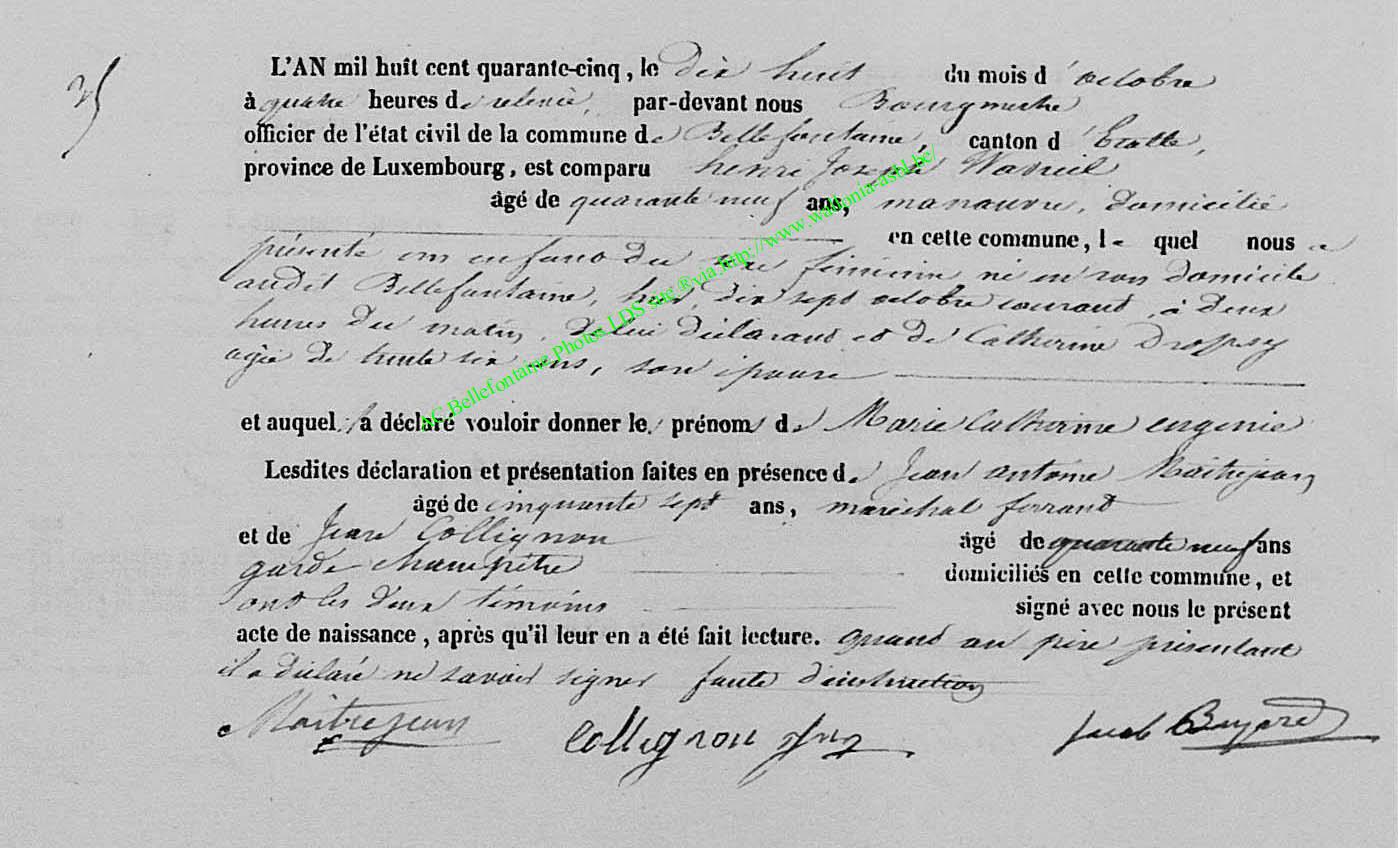 35
L'AN mil huit cent quarante-cinq, le dix huit du mois d'octobre
à quatre heures de relevée, par-devant nous Bourgmestre
officier de l'état civil de la commune de Bellefontaine, canton d'Etalle,
province de Luxembourg, est comparu henri Joseph
âgé de quarante neuf ans, manœuvre, domicilié
en cette commune, le quel nous a
présenté un enfant du sexe féminin né en son domicile
audit Bellefontaine, hier dix sept octobre courant, à deux
heures du matin, de lui déclarant et de Catherine Dropsy
agée de trente six ans, son épouse
et auquel il a déclaré vouloir donner les prénoms de Marie Catherine eugenie
Lesdites déclaration et présentation faites en présence de Jean antoine Maitrejean
âgé de cinquante sept ans, maréchal ferrant
et de Jean Collignon âgé de quarante neuf ans
garde champêtre domiciliés en cette commune, et
ont les deux témoins signé avec nous le présent
acte de naissance, après qu'il leur en a été fait lecture. quand au père présentant
il a déclaré ne savoir signer faute d'instruction
Maitrejean Collignon Jacob
AC Bellefontaine Photos LDS site ®via http://www.wallonia-asbl.be/